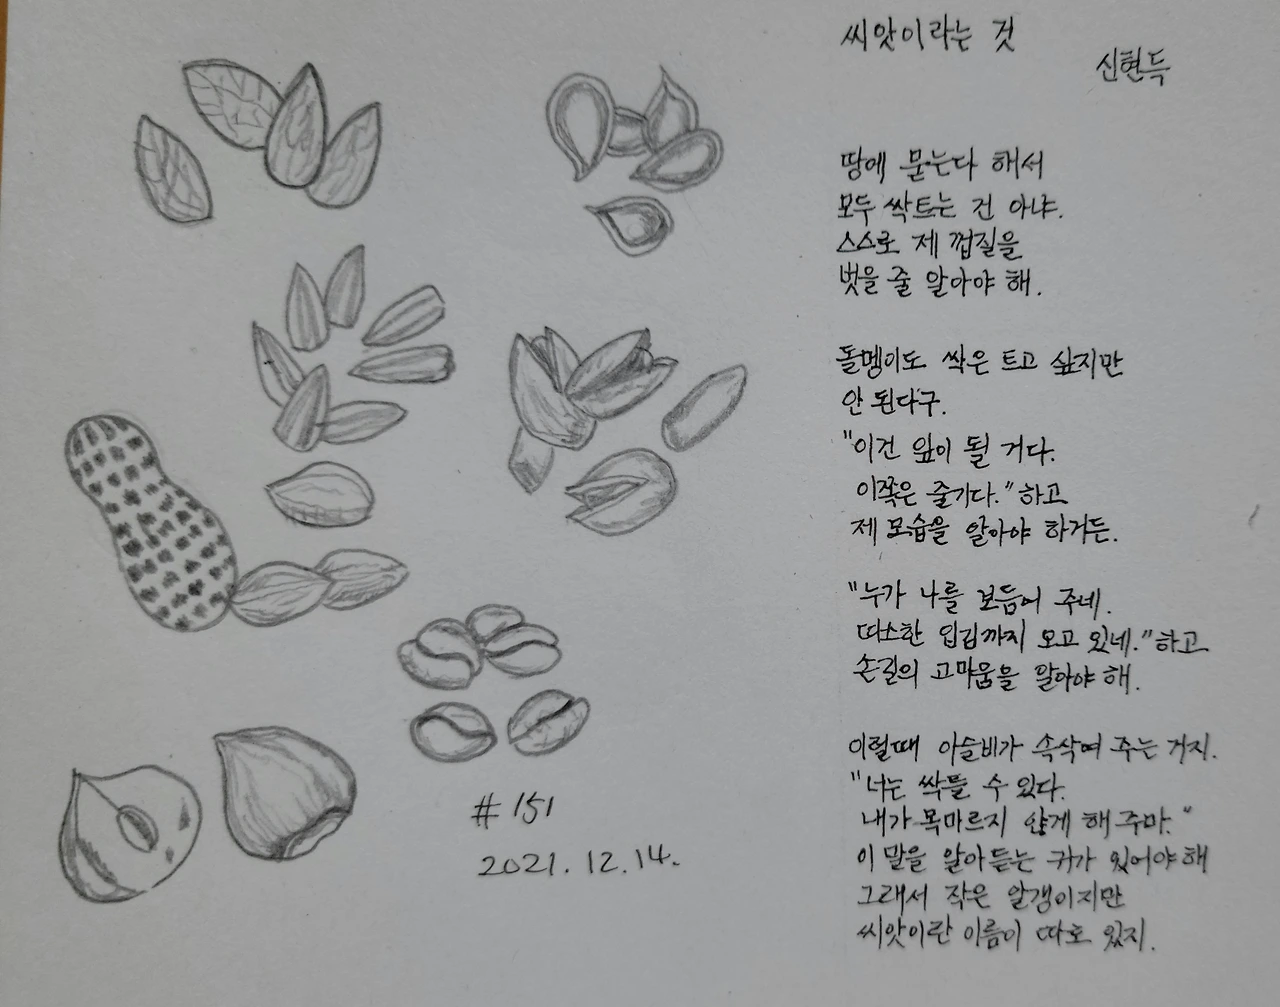 씨앗이라는 것
신현득
땅에 묻는다 해서
모두 싹트는 건 아냐.
스스로 제 껍질을
벗을 줄 알아야 해.
돌멩이도 싹은 트고 싶지만
안 된다구.
"이건 잎이 될 거다.
이쪽은 줄기다."하고
제 모습을 알아야 하거든.
"누가 나를 보듬어 주네.
따스한 입김까지 오고 있네."하고
손길의 고마움을 알아야 해.
이럴때 이슬비가 속삭여 주는 거지.
"너는 싹틀 수 있다.
내가 목마르지 않게 해 주마."
이 말을 알아 듣는 귀가 있어야 해
그래서 작은 알갱이지만
씨앗이란 이름이 따로 있지.
# 151
2021. 12. 14.